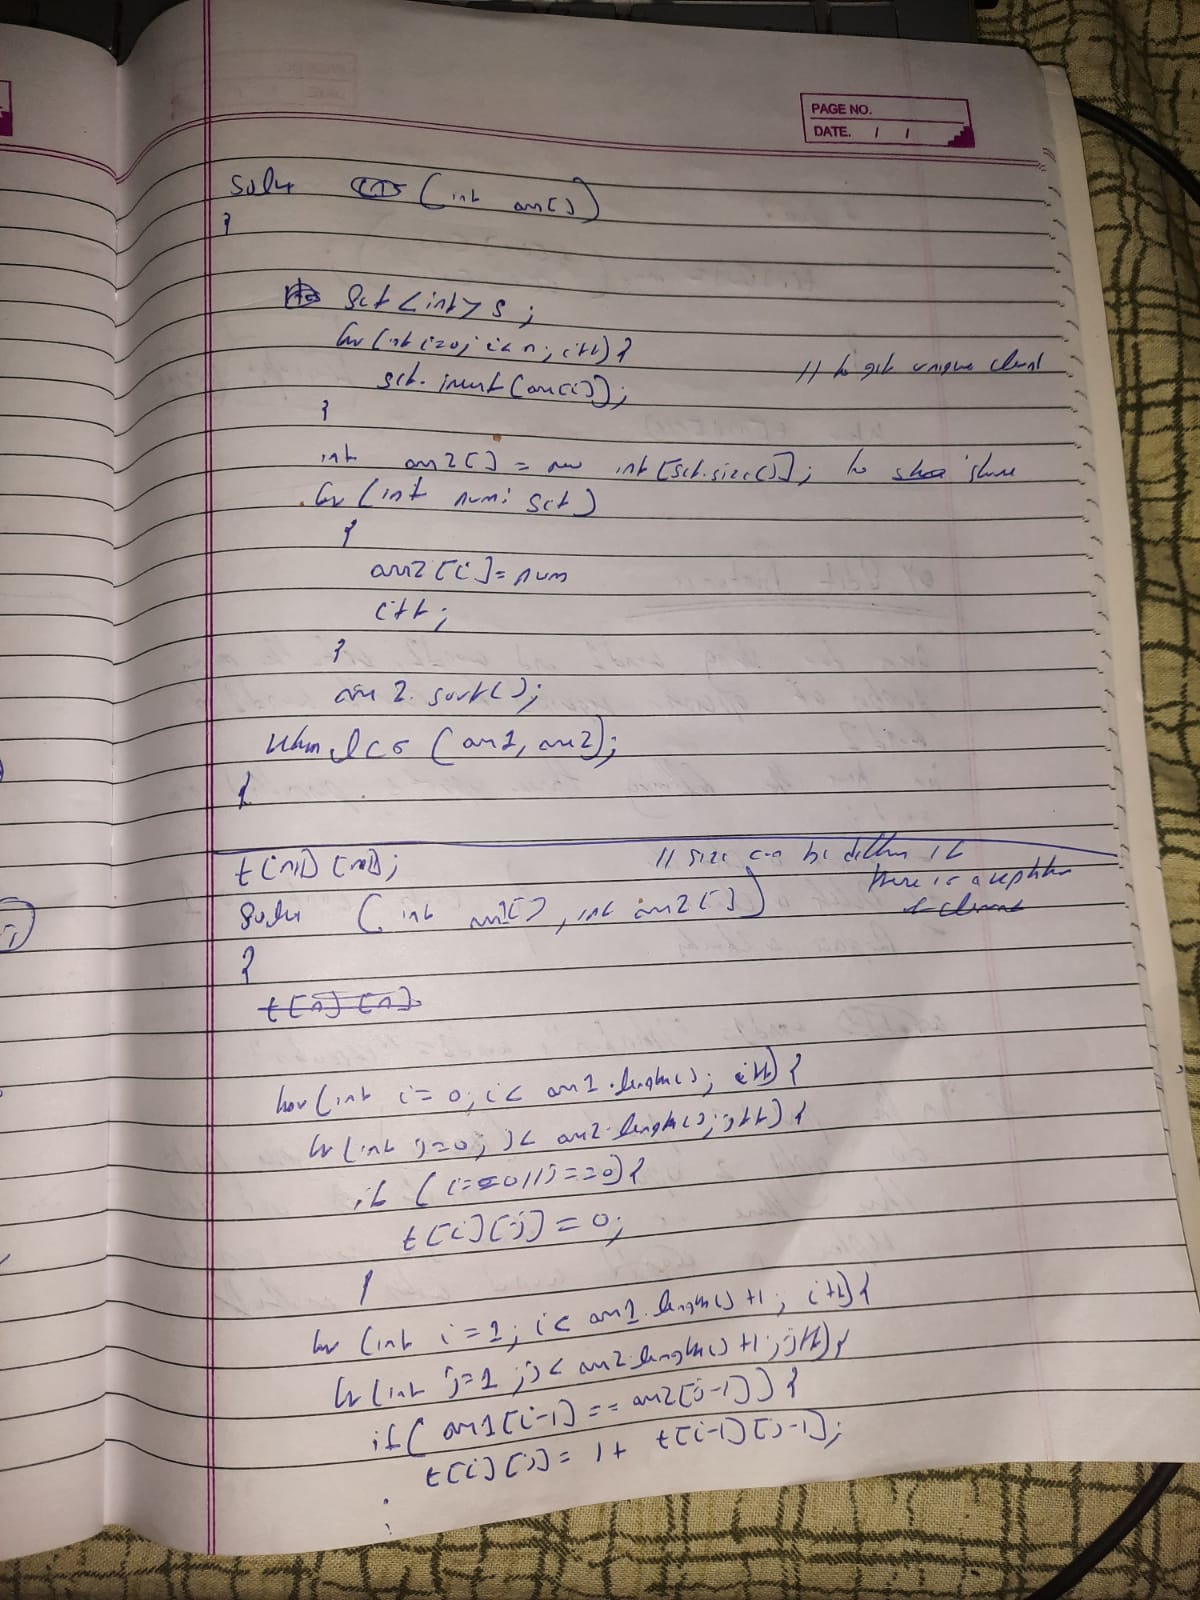 PAGE NO.
DATE. / /
solve (int arr[])
}
Set<int> s;
for (int i=0; i<n; i++) {
set.insert(arr[i]); // to get unique element
}
int arr2[] = new int[set.size()]; to store
for (int num: set)
{
arr2[i]=num
i++;
}
arr2.sort();
return lcs (arr1, arr2);
}
t[n+1][m+1]; // size can be differ if
there is a repition
of element
solve (int arr1[], int arr2[])
{
for (int i=0; i< arr1.length(); i++) {
for (int j=0; j< arr2.length(); j++) {
if (i==0||j==0){
t[i][j]=0;
}
for (int i=1; i< arr1.length()+1; i++){
for (int j=1; j< arr2.length()+1; j++){
if( arr1[i-1] == arr2[j-1]) {
t[i][j]= 1+ t[i-1][j-1];